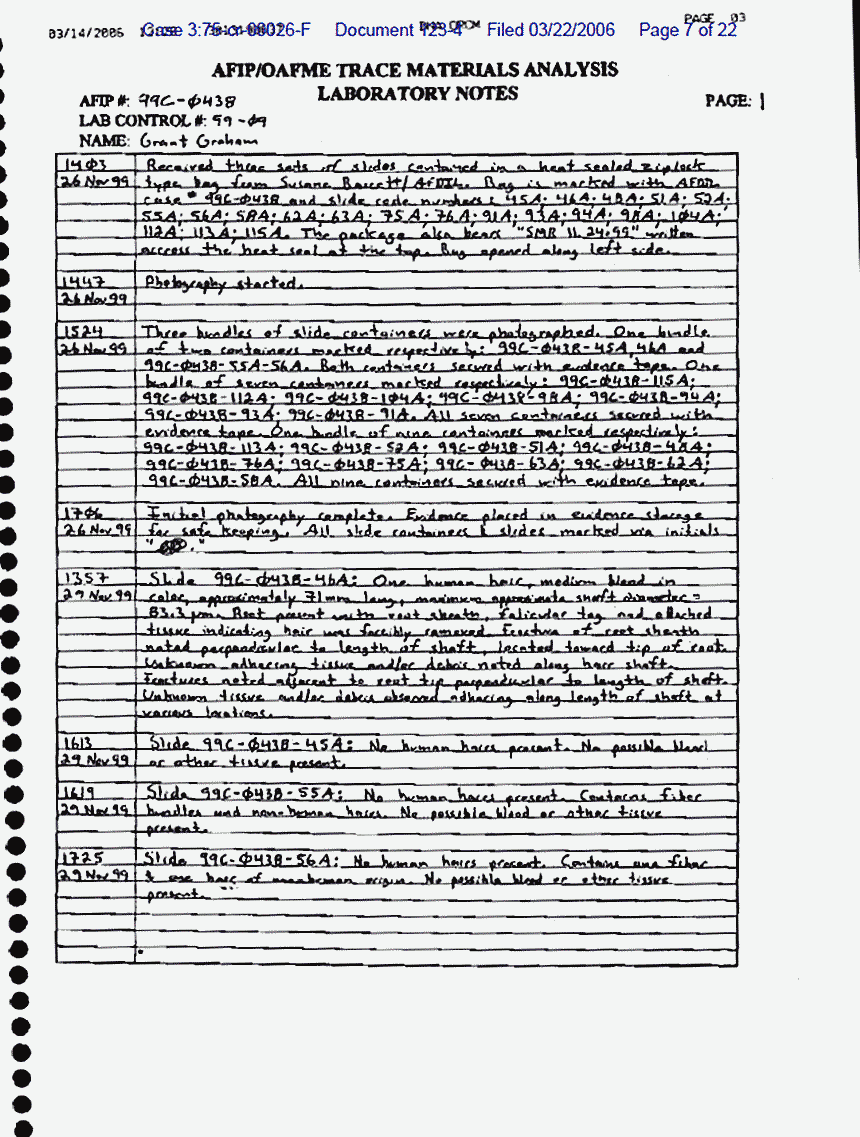 03/14/2006 Case 3:75-cr-00026-F Document 123-4 Filed 03/22/2006 Page 7 of 22
PAGE 03
AFIP/OAFME TRACE MATERIALS ANALYSIS
LABORATORY NOTES
PAGE: 1
AFIP #: 99C-Ø438
LAB CONTROL #: 59-09
NAME: Grant Graham
14Ø3 Received three sets of slides contained in a heat sealed ziplock
26 Nov 99 type bag from Susane Barritt/AFDIL. Bag is marked with AFDIL
case # 99C-Ø438 and slide code numbers: 45A; 46A; 48A; 51A; 52A;
55A; 56A; 58A; 62A; 63A; 75A; 76A; 91A; 93A; 94A; 98A; 104A;
112A; 113A; 115A. The package also bears "SMB 11.24.99" written
accross the heat seal at the top. Bag opened along left side.
1447 Photography started.
26 Nov 99
1524 Three bundles of slide containers were photographed. One bundle
26 Nov 99 of two containers marked respectively: 99C-Ø438-45A,46A and
99C-Ø438-55A-56A. Both containers secured with evidence tape. One
bundle of seven containers marked respectively: 99C-Ø438-115A;
99C-Ø438-112A; 99C-Ø438-104A; 99C-Ø438-98A; 99C-Ø438-94A;
99C-Ø438-93A; 99C-Ø438-91A. All seven containers secured with
evidence tape. One bundle of nine containers marked respectively:
99C-Ø438-113A; 99C-Ø438-52A; 99C-Ø438-51A; 99C-Ø438-48A;
99C-Ø438-76A; 99C-Ø438-75A; 99C-Ø438-63A; 99C-Ø438-62A;
99C-Ø438-58A. All nine containers secured with evidence tape.
1706 Initial photography complete. Evidence placed in evidence storage
26 Nov 99 for safe keeping. All slide containers & slides marked via initials
1357 Slide 99C-Ø438-46A: One human hair, medium blond in
29 Nov 99 color, approximately 71mm long, maximum approximate shaft diameter =
83.3 µm. Root present with root sheath, folicular tag and attached
tissue indicating hair was forcibly removed. Fracture of root sheath
noted perpendicular to length of shaft, located toward tip of root.
Unknown adhearing tissue and/or debris noted along hair shaft.
Fractures noted adjacent to root tip perpendicular to length of shaft.
Unknown tissue and/or debris observed adhearing along length of shaft at
various locations.
1613 Slide 99C-Ø438-45A: No human hairs present. No possible blood
29 Nov 99 or other tissue present.
1619 Slide 99C-Ø438-55A: No human hairs present. Contains fiber
29 Nov 99 bundles and non-human hairs. No possible blood or other tissue
present.
1725 Slide 99C-Ø438-56A: No human hairs present. Contains one fiber
29 Nov 99 & one hair of nonhuman origin. No possible blood or other tissue
present.